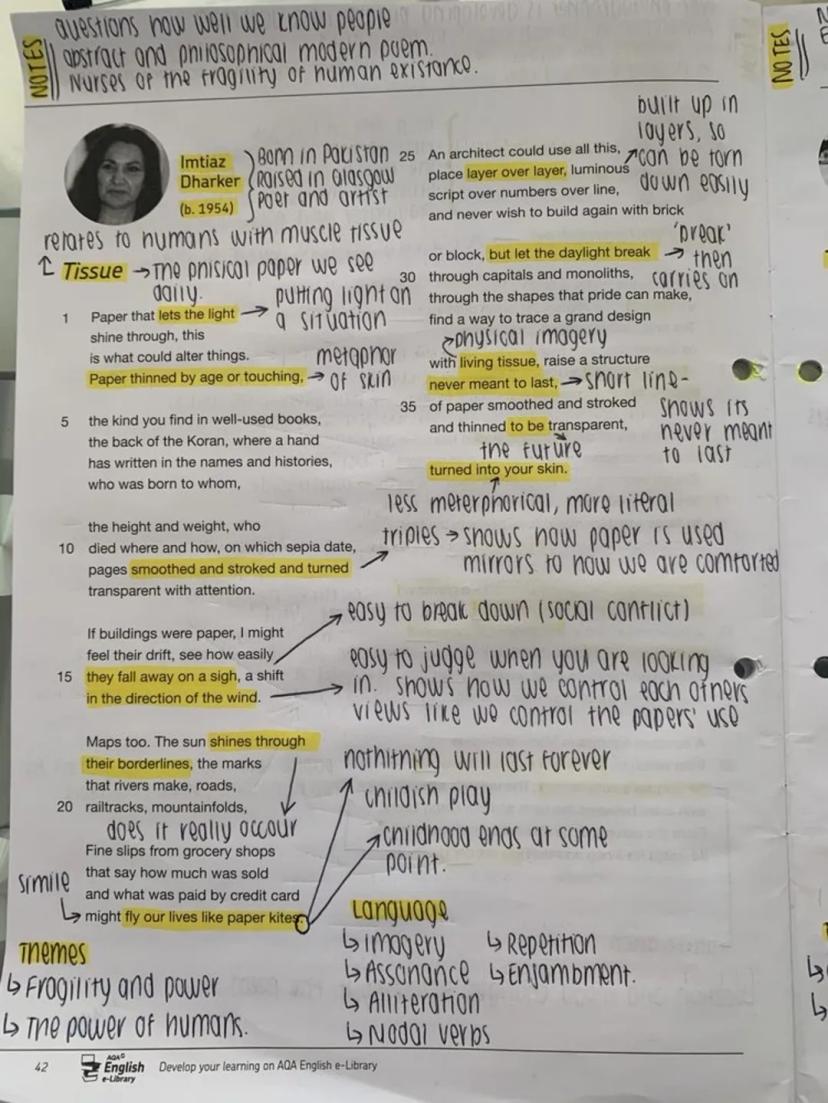 NOTES
questions how well we know people
abstract and philosophical modern poem.
Nurses of the fragility of human existance.
NOTES
Imtiaz
Dharker
(b. 1954)
Born in Pakistan
Raised in Glasgow
Poet and artist
relates to humans with muscle tissue
Tissue → The phisical paper we see
daily.
1 Paper that lets the light
shine through, this
is what could alter things.
Paper thinned by age or touching,
putting light on
a situation
metaphor
of skin
5 the kind you find in well-used books,
the back of the Koran, where a hand
has written in the names and histories,
who was born to whom,
the height and weight, who
10 died where and how, on which sepia date,
pages smoothed and stroked and turned
transparent with attention.
triples → shows how paper is used
mirrors to how we are comforted
If buildings were paper, I might
feel their drift, see how easily
15 they fall away on a sigh, a shift
in the direction of the wind.
easy to break down (social conflict)
easy to judge when you are looking
in. shows how we control each others
views like we control the papers' use
Maps too. The sun shines through
their borderlines, the marks
that rivers make, roads,
20 railtracks, mountainfolds,
does it really occour
Fine slips from grocery shops
that say how much was sold
and what was paid by credit card
might fly our lives like paper kites.
simile
nothitning will last forever
childish play
childhood ends at some
point.
25 An architect could use all this,
place layer over layer, luminous
script over numbers over line,
and never wish to build again with brick
built up in
layers, so
can be torn
down easily
or block, but let the daylight break
30 through capitals and monoliths,
through the shapes that pride can make,
find a way to trace a grand design
'break'
then
carries on
physical imagery
with living tissue, raise a structure
never meant to last,
35 of paper smoothed and stroked
and thinned to be transparent,
short line-
shows its
never meant
to last
the future
turned into your skin.
less meterphorical, more literal
Themes
↳ Fragility and power
↳ The power of humans.
Language
↳ Imagery
↳ Assonance
↳ Alliteration
↳ Modal verbs
↳ Repetition
↳ Enjambment.
42
AQA
English
e-Library
Develop your learning on AQA English e-Library